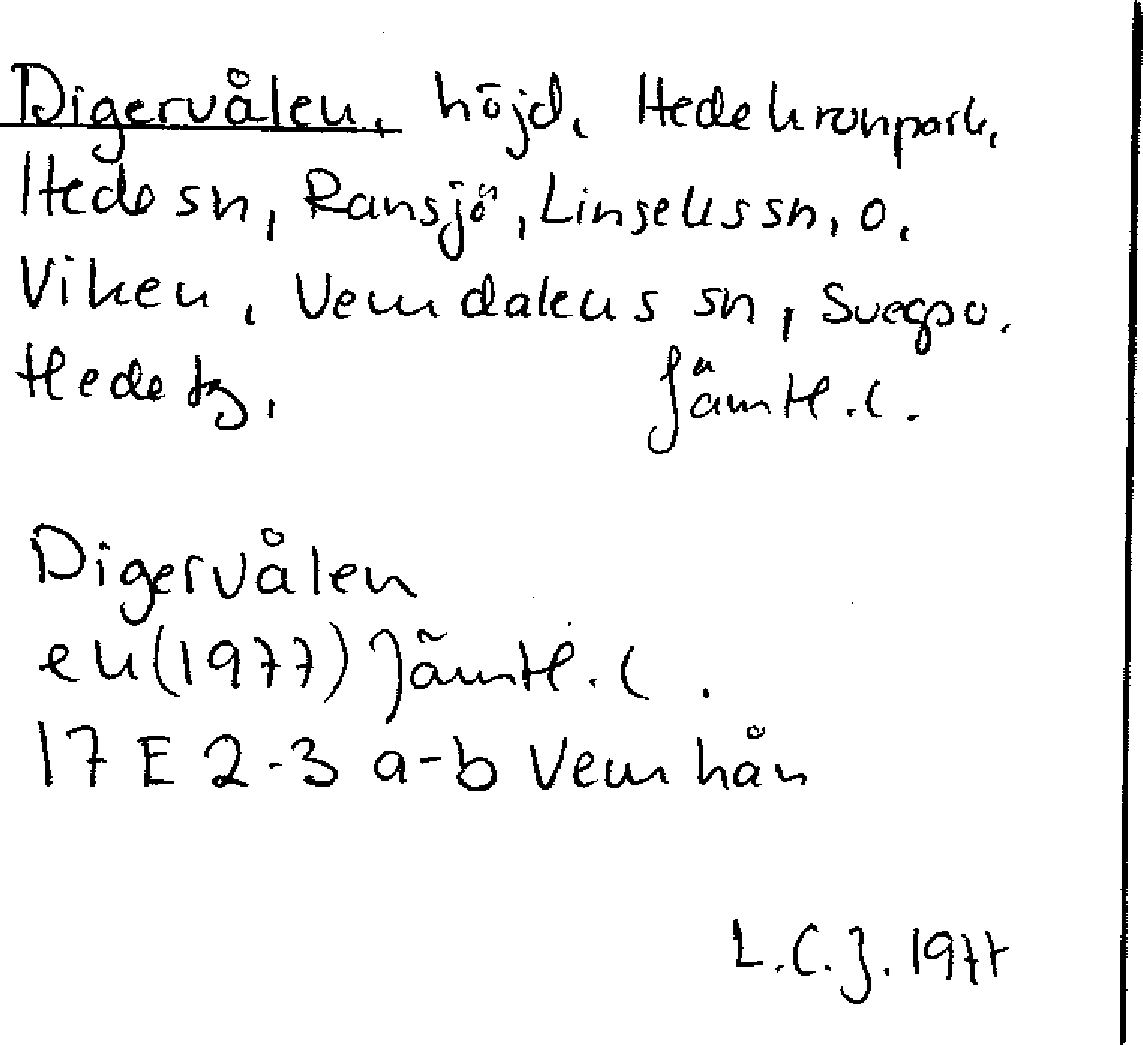 Digervålen, höjd, Hede kronpark,
Hede sn, Ransjö, Linsells sn, o.
Viken, Vemdalens sn, Svegs po.
Hede tg, Jämtl. l.
Digervålen
ek (1977) Jämtl. l.
17 E 2-3 a-b Vemhån
L.C.J. 1977